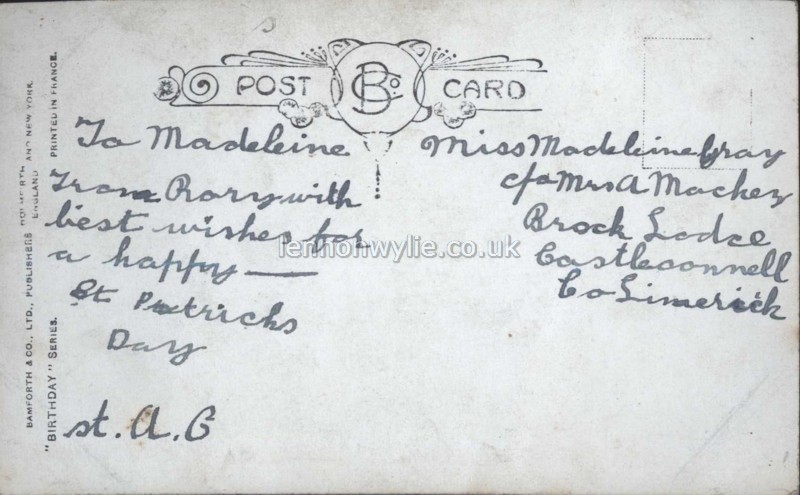 POST CARD
B Co.
To Madeleine
From Rory with
best wishes for
a happy —
St Patricks
Day
st. A. G
Miss Madeleine Gray
c/o Mrs A Mackey
Brock Lodge
Castleconnell
Co Limerick
BAMFORTH & CO., LTD., PUBLISHERS HOLMFIRTH AND NEW YORK.
ENGLAND
"BIRTHDAY" SERIES. PRINTED IN FRANCE.
lennonwylie.co.uk